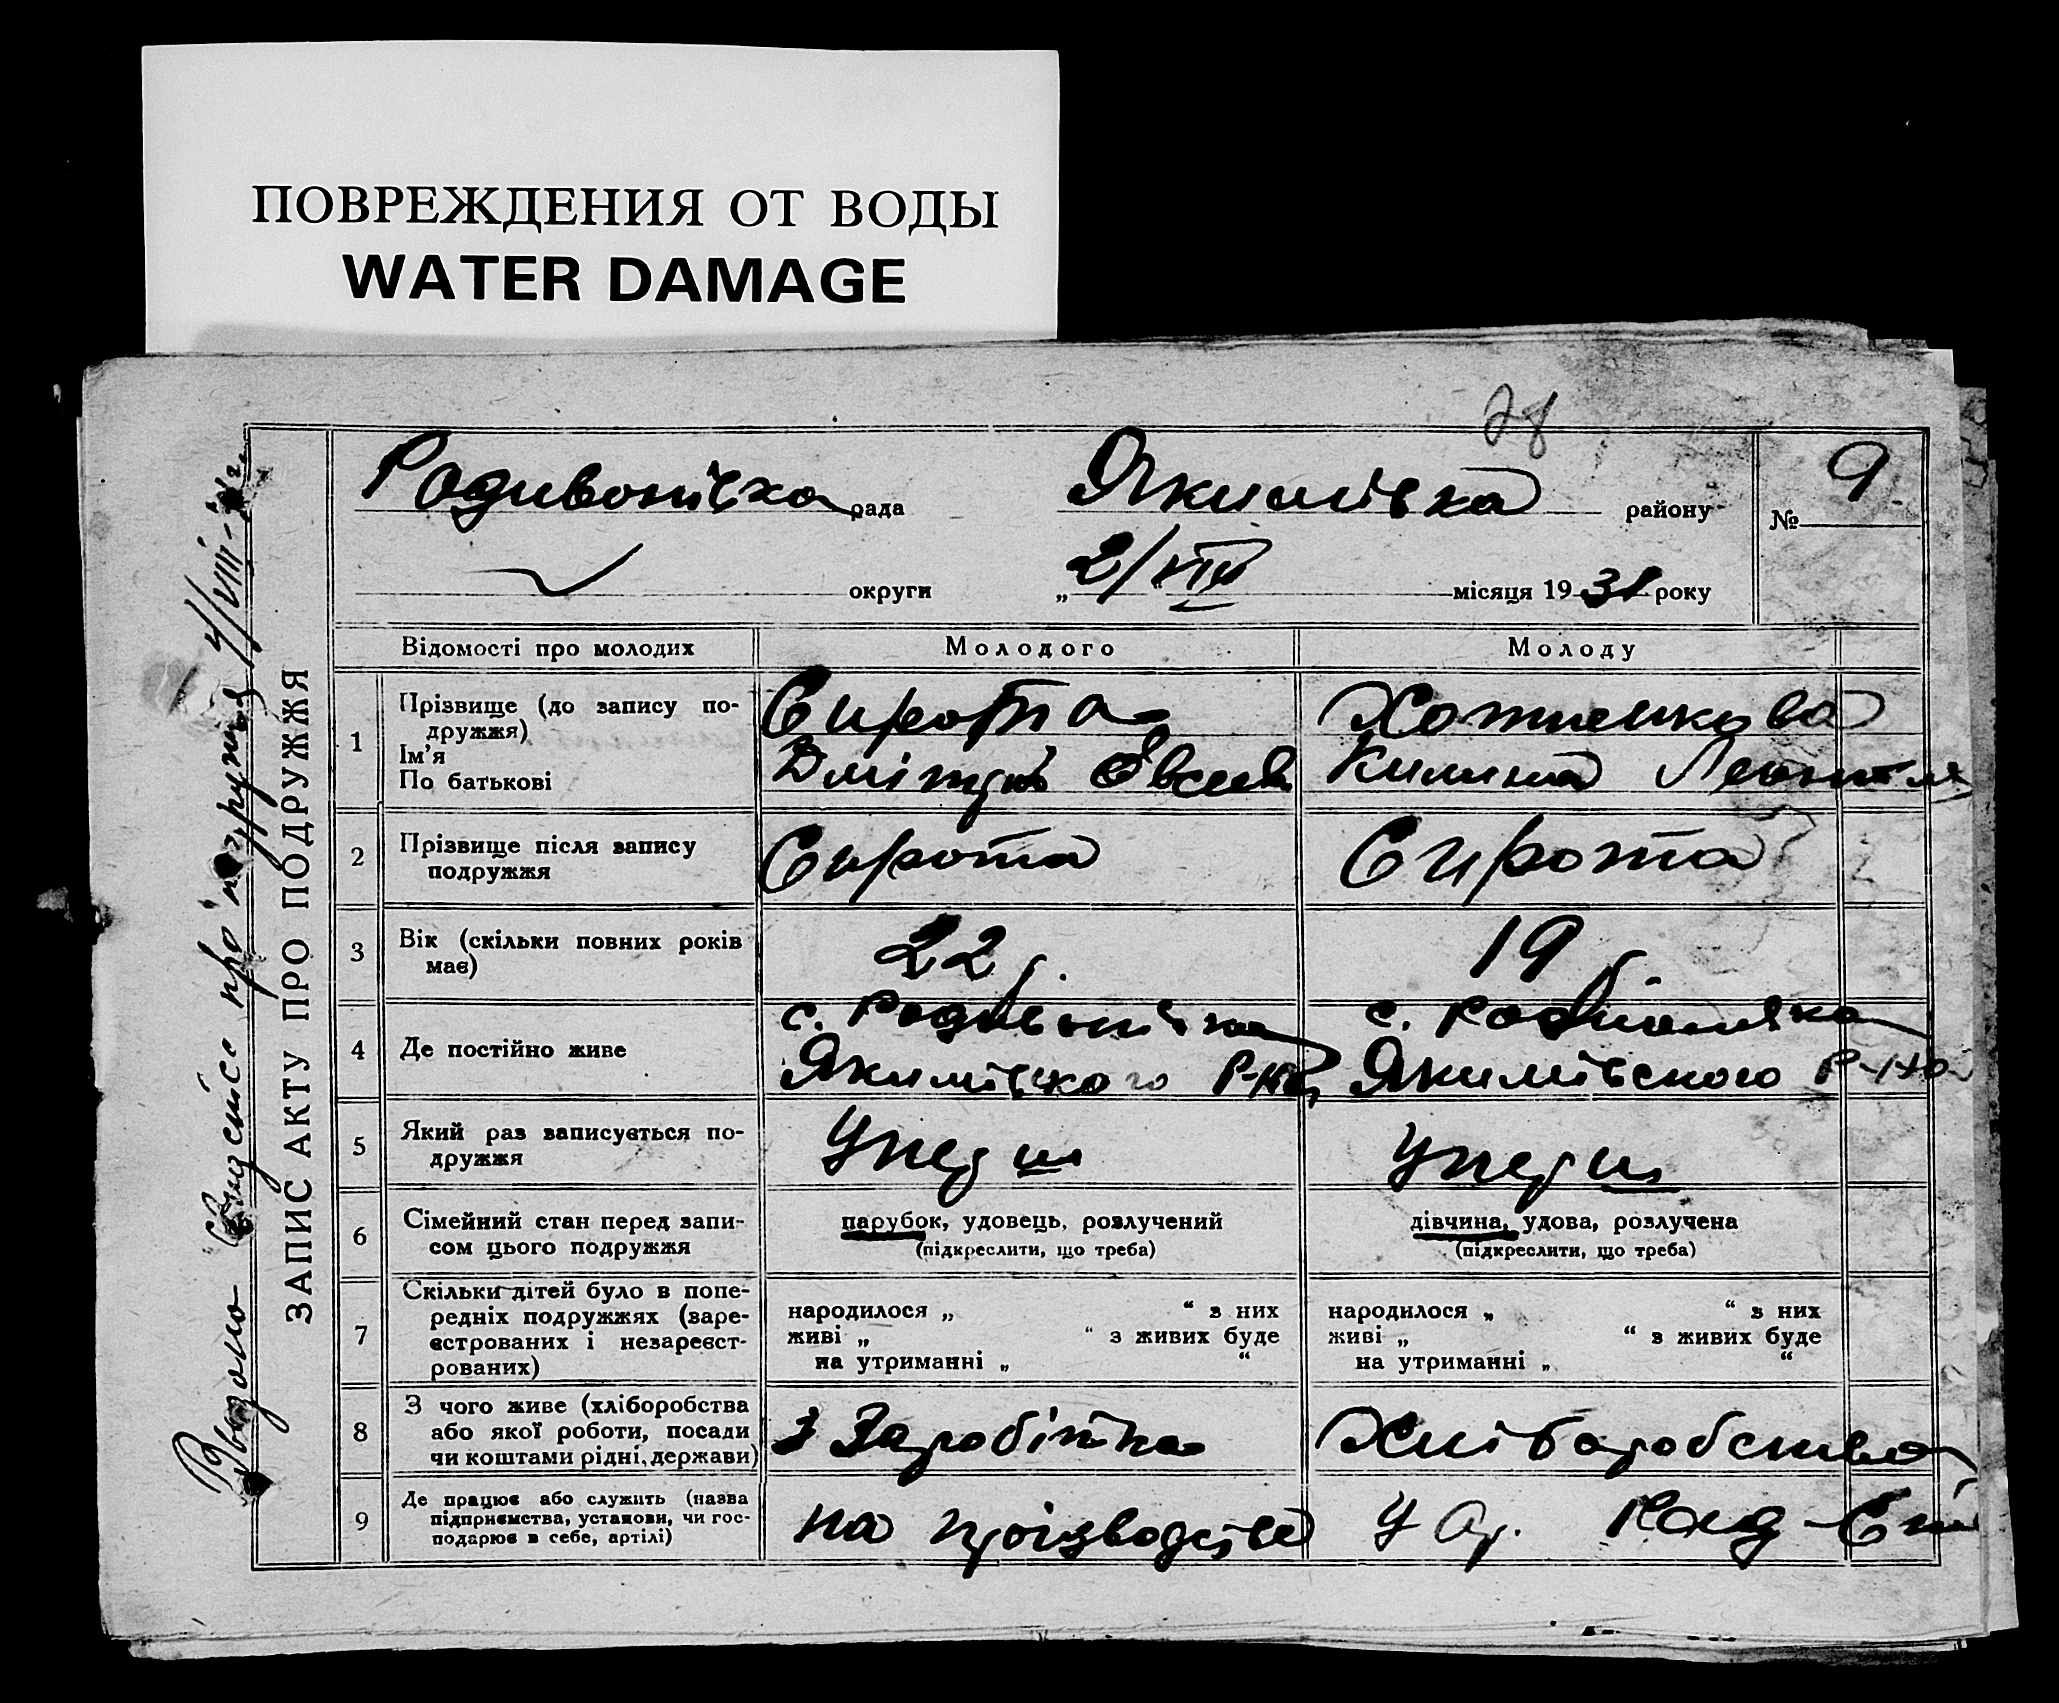 ПОВРЕЖДЕНИЯ ОТ ВОДЫ
WATER DAMAGE
28
Родивонівка рада Якимівка району № 9
округи „ 2/VIII “ місяця 1931 року
Відомості про молодих Молодого Молоду
ЗАПИС АКТУ ПРО ПОДРУЖЖЯ
Видано про 4/VIII-
1 Прізвище (до запису по-
дружжя)
Ім'я
По батькові
Сирота
Дмітрій Євсеев
Килина
2 Прізвище після запису
подружжя
Сирота
Сирота
3 Вік (скільки повних років
має)
22 р.
19 р.
4 Де постійно живе
с. Родивонівка
Якимівского Р-на
с. Родивонівка
Якимівского Р-на
5 Який раз записується по-
дружжя
Уперш
Уперш
6 Сімейний стан перед запи-
сом цього подружжя
парубок, удовець, розлучений
(підкреслити, що треба)
дівчина, удова, розлучена
(підкреслити, що треба)
7 Скільки дітей було в попе-
редніх подружжях (заре-
єстрованих і незареєст-
рованих)
народилося „ “ з них
живі „ “ з живих буде
на утриманні „ “
народилося „ “ з них
живі „ “ з живих буде
на утриманні „ “
8 З чого живе (хліборобства
або якої роботи, посади
чи коштами рідні, держави)
З Заробітка
Хліборобства
9 Де працює або служить (назва
підприємства, установи, чи гос-
подарює в себе, артілі)
на проізводстві
У